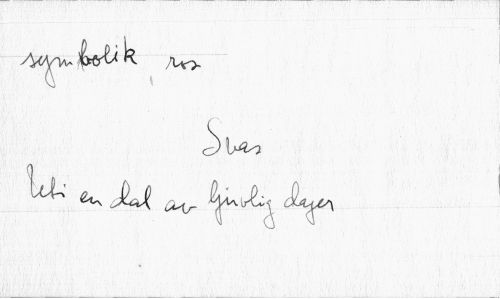 symbolik, ros
Svas
en dal av ljuvlig dager